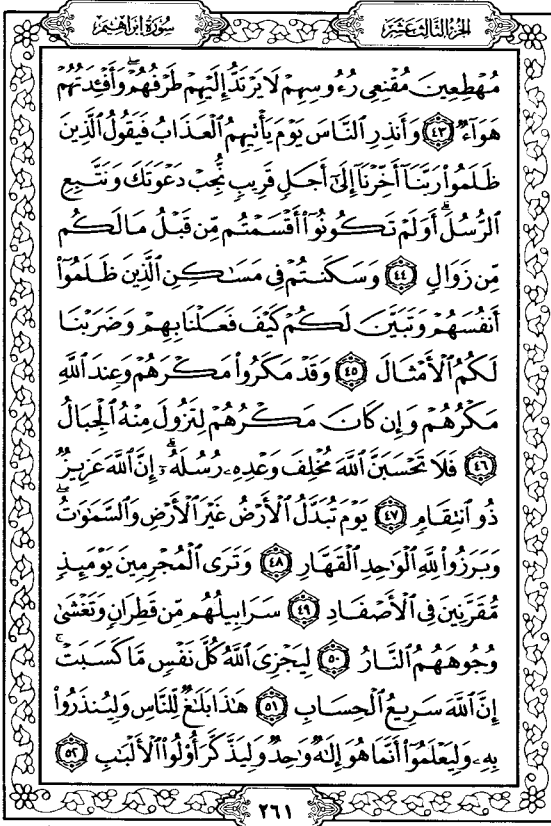 سُورَةُ إِبْرَاهِيمَ
الجُزْءُ الثَّالِثَ عَشَرَ
مُهْطِعِينَ مُقْنِعِى رُءُوسِهِمْ لَا يَرْتَدُّ إِلَيْهِمْ طَرْفُهُمْ ۖ وَأَفْـِٔدَتُهُمْ
هَوَآءٌ ﴿٤٣﴾ وَأَنذِرِ ٱلنَّاسَ يَوْمَ يَأْتِيهِمُ ٱلْعَذَابُ فَيَقُولُ ٱلَّذِينَ
ظَلَمُوا۟ رَبَّنَآ أَخِّرْنَآ إِلَىٰٓ أَجَلٍ قَرِيبٍ نُّجِبْ دَعْوَتَكَ وَنَتَّبِعِ
ٱلرُّسُلَ ۗ أَوَلَمْ تَكُونُوٓا۟ أَقْسَمْتُم مِّن قَبْلُ مَا لَكُم
مِّن زَوَالٍ ﴿٤٤﴾ وَسَكَنتُمْ فِى مَسَـٰكِنِ ٱلَّذِينَ ظَلَمُوٓا۟
أَنفُسَهُمْ وَتَبَيَّنَ لَكُمْ كَيْفَ فَعَلْنَا بِهِمْ وَضَرَبْنَا
لَكُمُ ٱلْأَمْثَالَ ﴿٤٥﴾ وَقَدْ مَكَرُوا۟ مَكْرَهُمْ وَعِندَ ٱللَّهِ
مَكْرُهُمْ وَإِن كَانَ مَكْرُهُمْ لِتَزُولَ مِنْهُ ٱلْجِبَالُ
﴿٤٦﴾ فَلَا تَحْسَبَنَّ ٱللَّهَ مُخْلِفَ وَعْدِهِۦ رُسُلَهُۥٓ ۗ إِنَّ ٱللَّهَ عَزِيزٌ
ذُو ٱنتِقَامٍ ﴿٤٧﴾ يَوْمَ تُبَدَّلُ ٱلْأَرْضُ غَيْرَ ٱلْأَرْضِ وَٱلسَّمَـٰوَٰتُ ۖ
وَبَرَزُوا۟ لِلَّهِ ٱلْوَٰحِدِ ٱلْقَهَّارِ ﴿٤٨﴾ وَتَرَى ٱلْمُجْرِمِينَ يَوْمَئِذٍ
مُّقَرَّنِينَ فِى ٱلْأَصْفَادِ ﴿٤٩﴾ سَرَابِيلُهُم مِّن قَطِرَانٍ وَتَغْشَىٰ
وُجُوهَهُمُ ٱلنَّارُ ﴿٥٠﴾ لِيَجْزِىَ ٱللَّهُ كُلَّ نَفْسٍ مَّا كَسَبَتْ ۚ
إِنَّ ٱللَّهَ سَرِيعُ ٱلْحِسَابِ ﴿٥١﴾ هَـٰذَا بَلَـٰغٌ لِّلنَّاسِ وَلِيُنذَرُوا۟
بِهِۦ وَلِيَعْلَمُوٓا۟ أَنَّمَا هُوَ إِلَـٰهٌ وَٰحِدٌ وَلِيَذَّكَّرَ أُو۟لُوا۟ ٱلْأَلْبَـٰبِ ﴿٥٢﴾
٢٦١